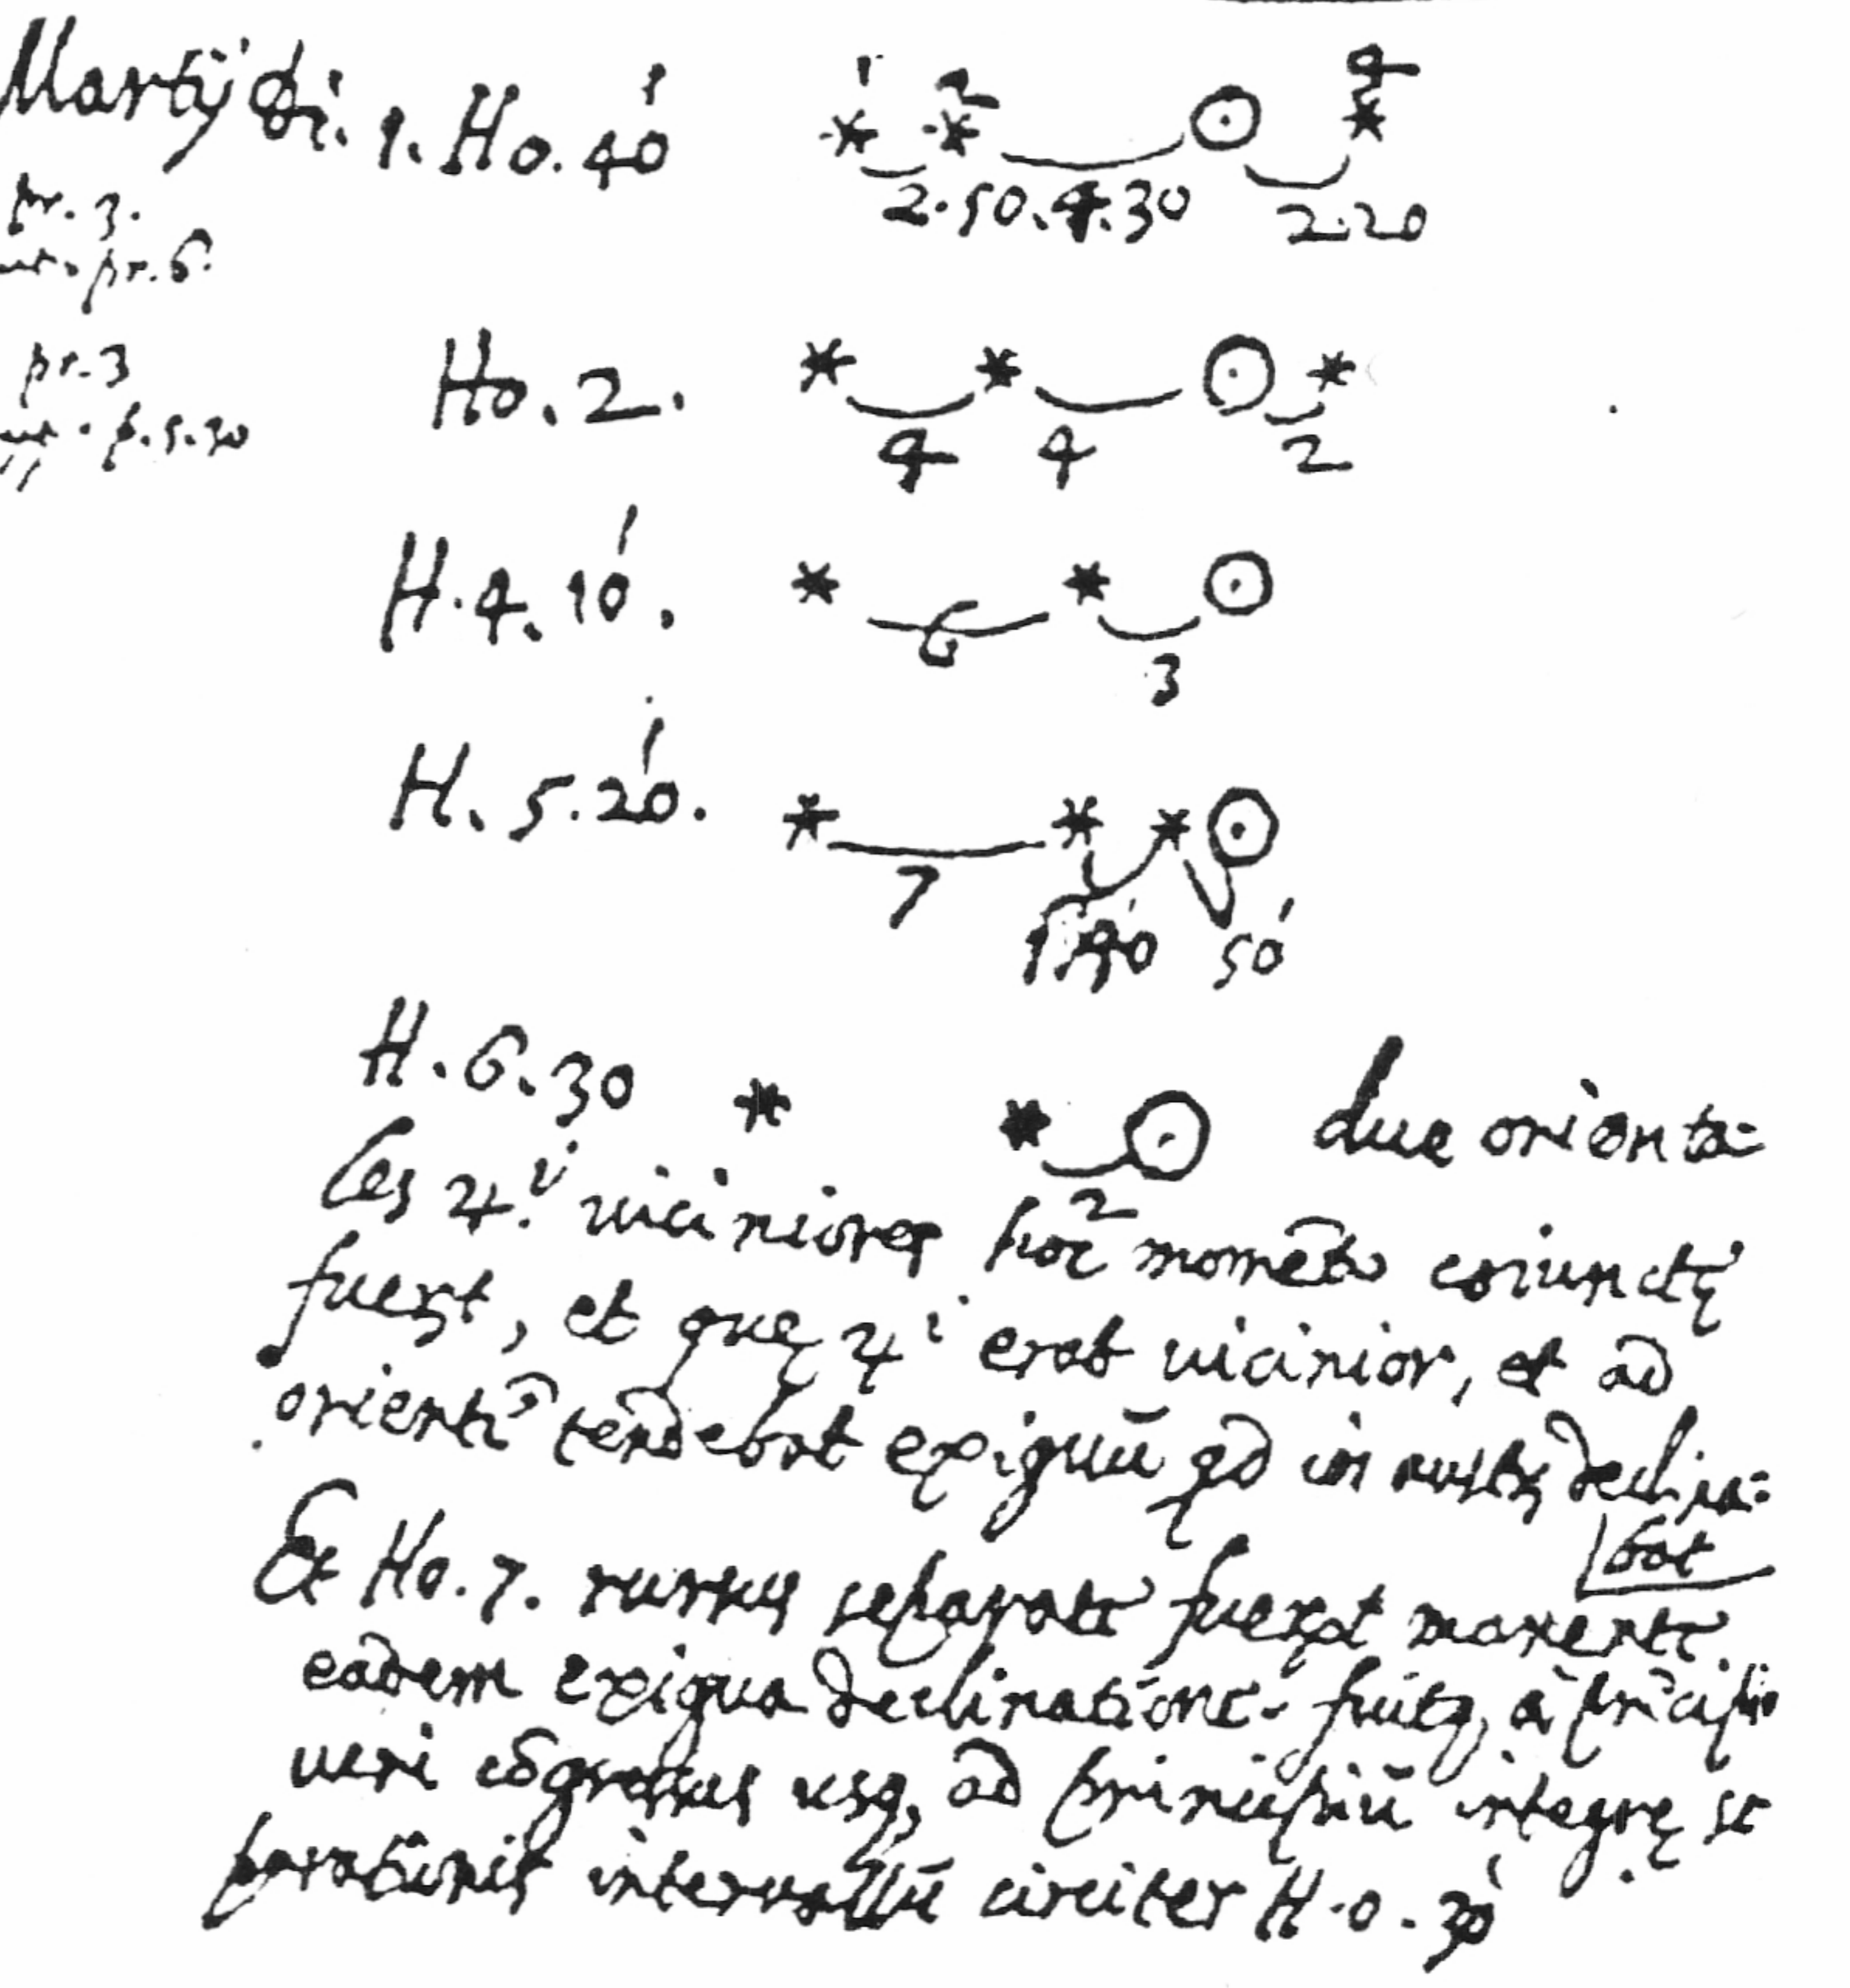 Martij di. 1. Ho. 40'
1 2 4
2.50. 4.30 2.20
pr. 3.
pr. 6
Ho. 2.
4 4 2
pr. 3
p. 5.30
H. 4. 10'.
6 3
H. 5. 20'.
7 1.40' 50'
H. 6. 30 2 due orienta=
les ♃.i viciniores hoc momēto cōiunctę
fuerūt, et quę ♃i erat vicinior, et ad
orientē tendebat exiguū qd in austrū declina=
bat
Et Ho. 7. rursus separate fuerūt manente
eadem exigua declinatione. fuitq; à prīcipio
veri cōgressus usq; ad principiū integrę se
parationis intervallū circiter H. 0. 30'